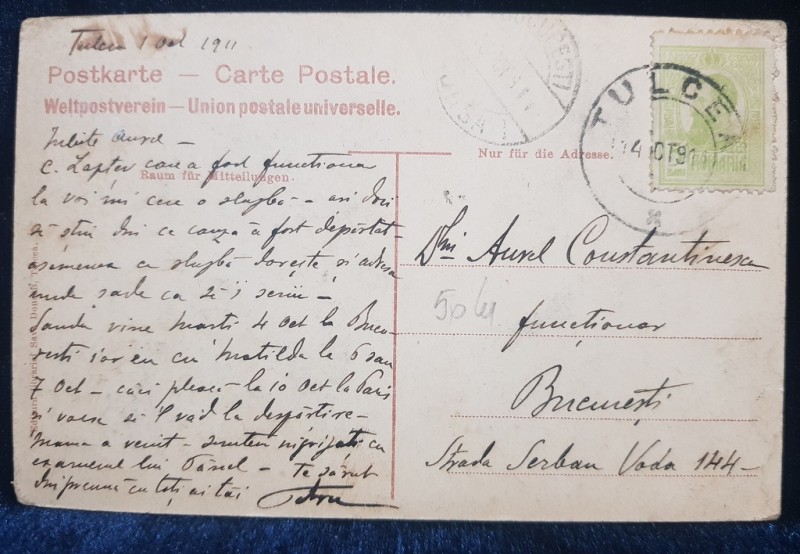 Tulcea 1 Oct 1911
Postkarte — Carte Postale.
Weltpostverein — Union postale universelle.
Iubite Aurel —
C. Laptev care a fost functionar
Raum für Mitteilungen.
la voi îmi cere o slujbă — aşi dori
să ştiu din ce cauză a fost depărtat —
asemenea ce slujbă doreşte şi adresa
unde sade ca să-i scriu —
Sanda vine Marti 4 Oct la Bucu
resti iar eu cu Matilda la 6 sau
7 Oct — căci pleacă la 10 Oct la Paris
si voesc să-l văd la despărtire —
Mama a venit — suntem îngrijati cu
examenul lui — te sărut
împreună cu toti ai tăi
Nur für die Adresse.
TULCEA
14 OCT 911
Dlui Aurel Constantinescu
50 lei
functionar
Bucureşti
Strada Serban Voda 144 —